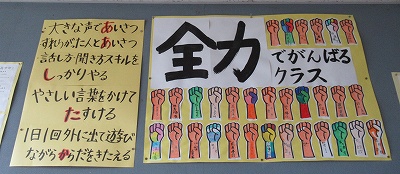 大きな声であいさつ
すれちがう人とあいさつ
話し方・聞き方スキルを
しっかりやる
やさしい言葉をかけて
たすける
1日1回外に出て遊び
ながらからだをきたえる
全力
でがんばる
クラス